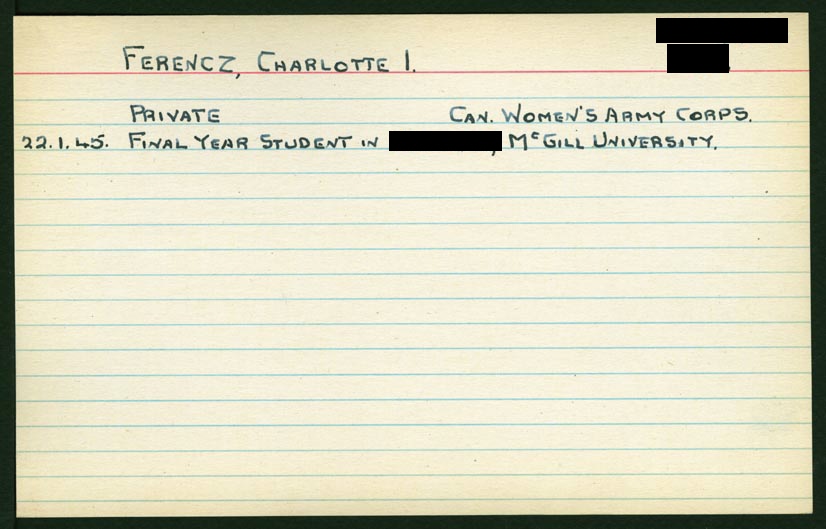 FERENCZ, CHARLOTTE I.
PRIVATE CAN. WOMEN'S ARMY CORPS.
22.1.45. FINAL YEAR STUDENT IN , McGILL UNIVERSITY.